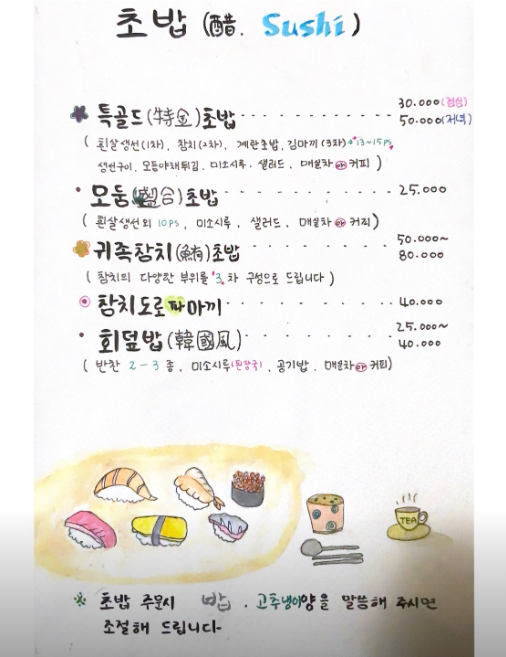 초밥 (醋. Sushi)
특골드(特金)초밥 30.000(점심)
50.000(저녁)
( 흰살생선(1차), 참치(2차), 계란초밥, 김마끼 (3차) → 13~15PS
생선구이, 모듬야채튀김. 미소시루. 샐러드. 매실차 or 커피 )
모둠(盛合)초밥 25.000
( 흰살생선외 10PS, 미소시루, 샐러드. 매실차 or 커피 )
귀족참치(鮪)초밥 50.000~
80.000
( 참치의 다양한 부위를 "3"차 구성으로 드립니다 )
참치도로파마끼 40.000
회덮밥(韓國風) 25.000~
40.000
( 반찬 2-3종. 미소시루(된장국). 공기밥. 매실차 or 커피)
TEA
초밥 주문시 밥. 고추냉이양을 말씀해 주시면
조절해 드립니다-